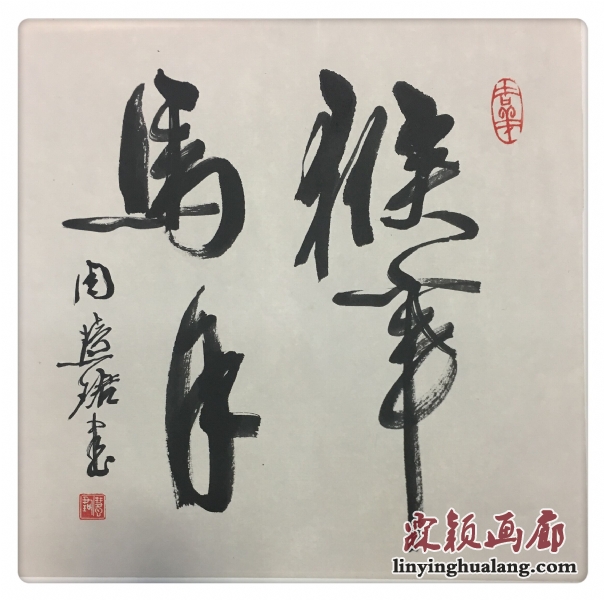 猴年
馬月
周慧珺書
霖颖画廊
linyinghualang.com